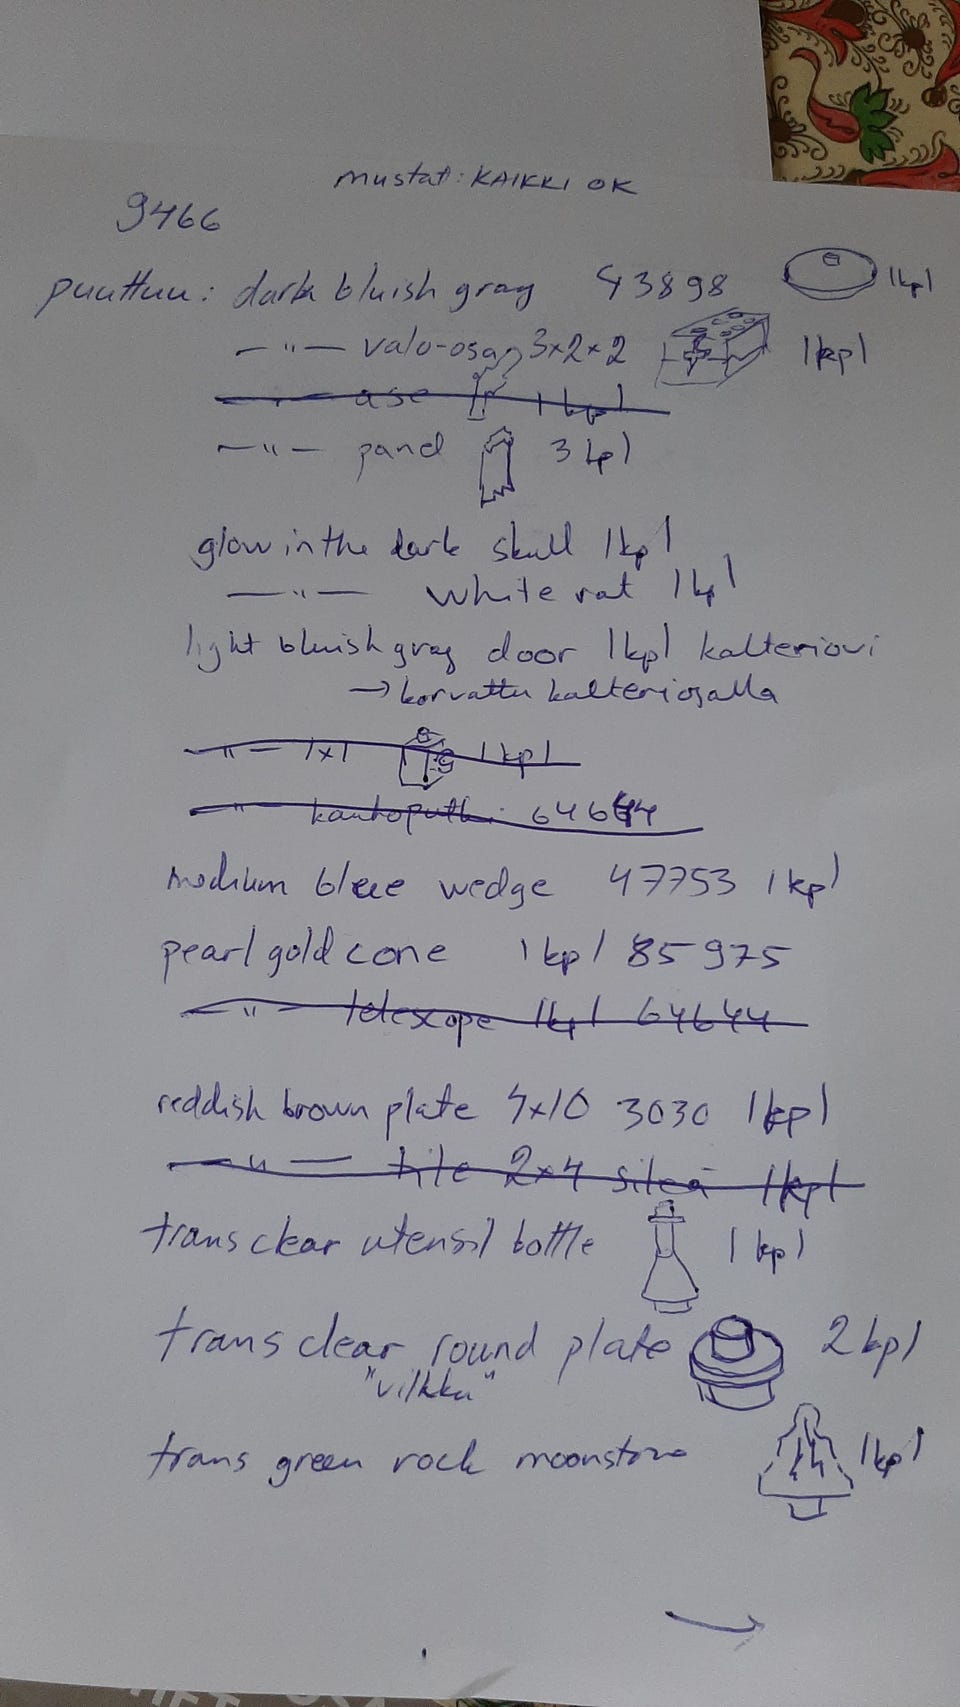 mustat: KAIKKI OK
9466
puuttuu: dark bluish gray 43898 1kpl
— " — valo-osa 3x2x2 1kpl
— " — ase 1kpl
— " — panel 3 kpl
glow in the dark skull 1kpl
— " — white rat 1kpl
light bluish gray door 1kpl kalteriovi
→ korvattu kalteriosalla
— " — 1x1 1kpl
— " — kaukoputki 64644
medium blue wedge 47753 1kpl
pearl gold cone 1kpl 85975
— " — telescope 1kpl 64644
reddish brown plate 4x10 3030 1kpl
— " — tile 2x4 sileä 1kpl
trans clear utensil bottle 1kpl
trans clear round plate 2kpl
"vilkku"
trans green rock moonstone 1kpl
→